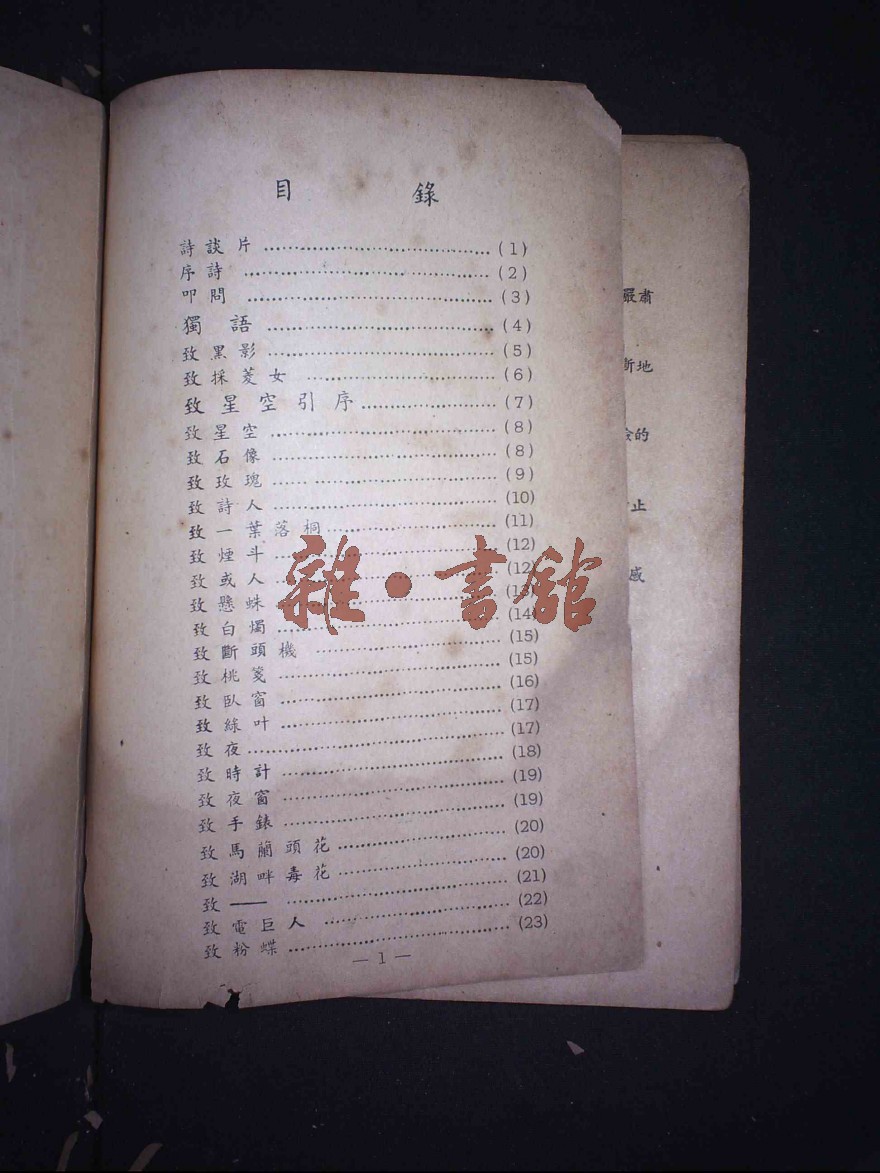 目　錄
詩談片……………………………(1)
序詩……………………………(2)
叩問……………………………(3)
獨語……………………………(4)
致黑影……………………………(5)
致採菱女……………………………(6)
致星空引序……………………(7)
致星空……………………………(8)
致石像……………………………(8)
致玫瑰……………………………(9)
致詩人……………………………(10)
致一葉落桐……………………(11)
致煙斗……………………………(12)
致或人……………………………(12)
致懸蛛……………………………(13)
致白燭……………………………(14)
致斷頭機……………………………(15)
致桃箋……………………………(15)
致臥窗……………………………(16)
致綠叶……………………………(17)
致夜……………………………(17)
致時計……………………………(18)
致夜窗……………………………(19)
致手錶……………………………(19)
致馬蘭頭花……………………(20)
致湖畔毒花……………………(20)
致——……………………………(21)
致電巨人……………………………(22)
致粉蝶……………………………(23)
— 1 —
嚴肅
地
的
止
感
雜·書館